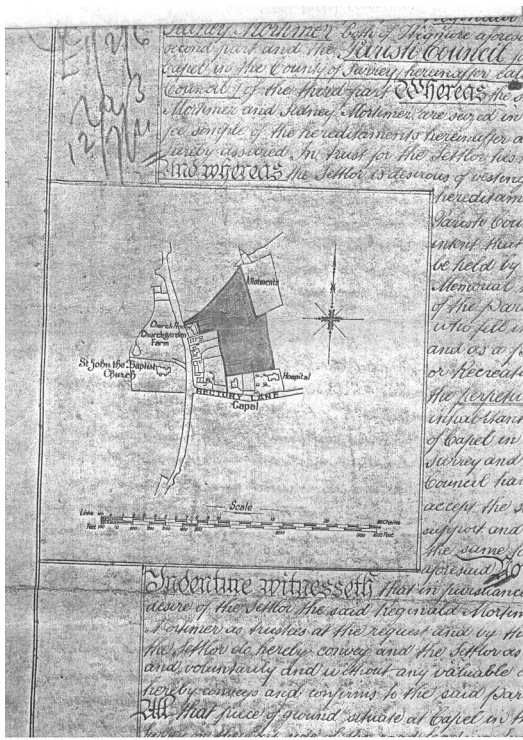 Sidney Mortimer both of Wigmore aforesa
second part and the Parish Council fo
Capel in the County of Surrey hereinafter cal
Council) of the third part Whereas the S
Mortimer and Sidney Mortimer are seized in
fee simple of the hereditaments hereinafter d
hereby assured In trust for the Settlor
And whereas the Settlor is desirous of vesting
hereditam
Parish Cou
intent that
be held by
Memorial
of the Par
who fell in
and as a p
or Recreat
the perpetu
inhabitan
of Capel in
Surrey and
Council ha
accept the s
support and
the same fo
aforesaid No
Allotments
Church
Churchgarden
Farm
St John the Baptist
Church
Hospital
RECTORY LANE
Capel
N
Scale
Links
Feet
Indenture witnesseth that in pursuance
desire of the Settlor the said Reginald Mortim
Mortimer as trustees at the request and by th
the Settlor do hereby convey and the Settlor as
and voluntarily and without any valuable c
hereby conveys and confirms to the said Par
All that piece of ground situate at Capel in t